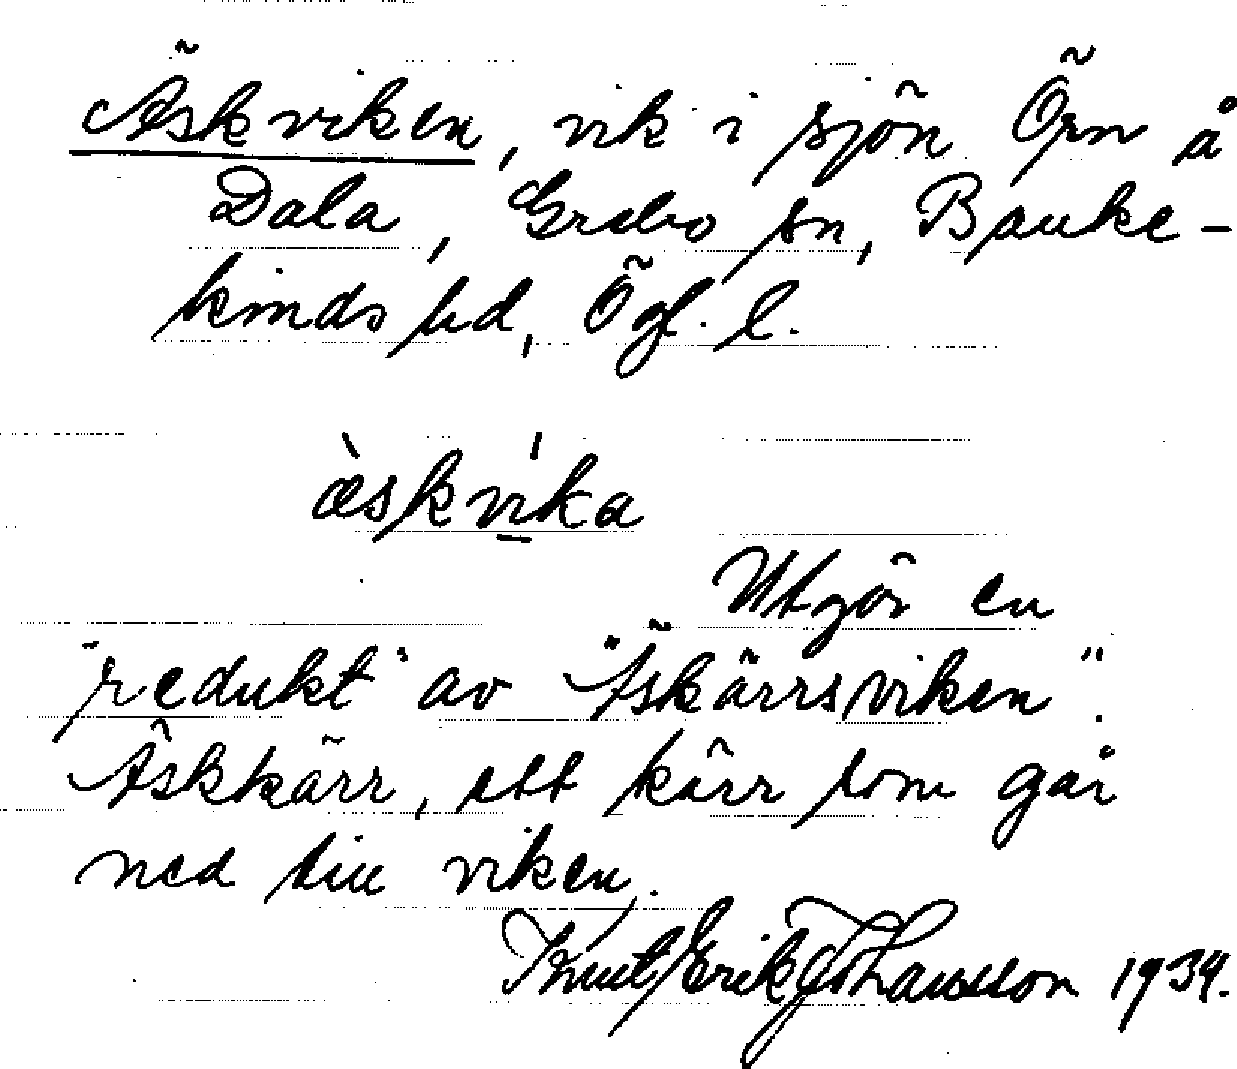 Äskviken, vik i sjön Örn å
Dala, Grebo sn, Banke-
kinds hd, Ögl. l.
æ̀skvíka
Utgör en
"redukt" av "Äskärrsviken".
Äskkärr, ett kärr som går
ned till viken.
Knut Erik Johansson 1934.